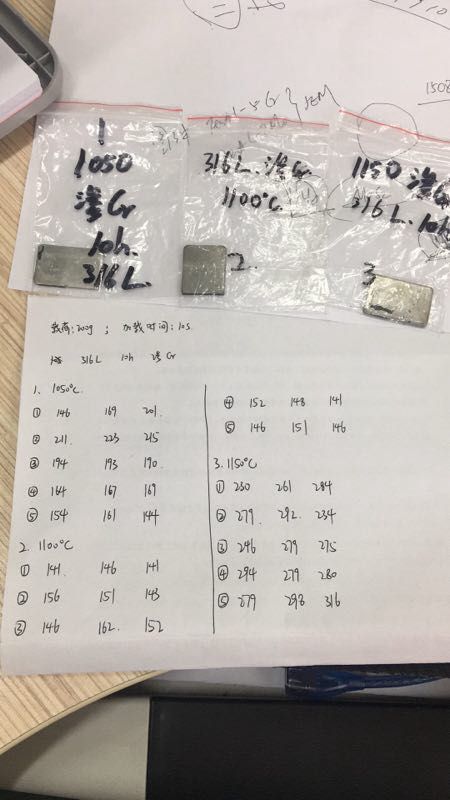 1508
1
1050
渗Cr
10h.
316L
316L.渗Cr
1100℃
2.
1150 渗Cr
316L.10h
3
载荷:200g ; 加载时间:10s.
316L 10h 渗Cr
1、1050℃.
① 146 169 201.
② 211. 223 215
③ 194 193 190.
④ 164 167 169
⑤ 154 161 144
2. 1100℃
① 141. 146 141
② 156 151 143
③ 146 162. 152
④ 152 148 141
⑤ 146 151 146
3.1150℃
① 230 261 284
② 279. 292. 234
③ 246 279 275
④ 294 279 280
⑤ 279 298 316